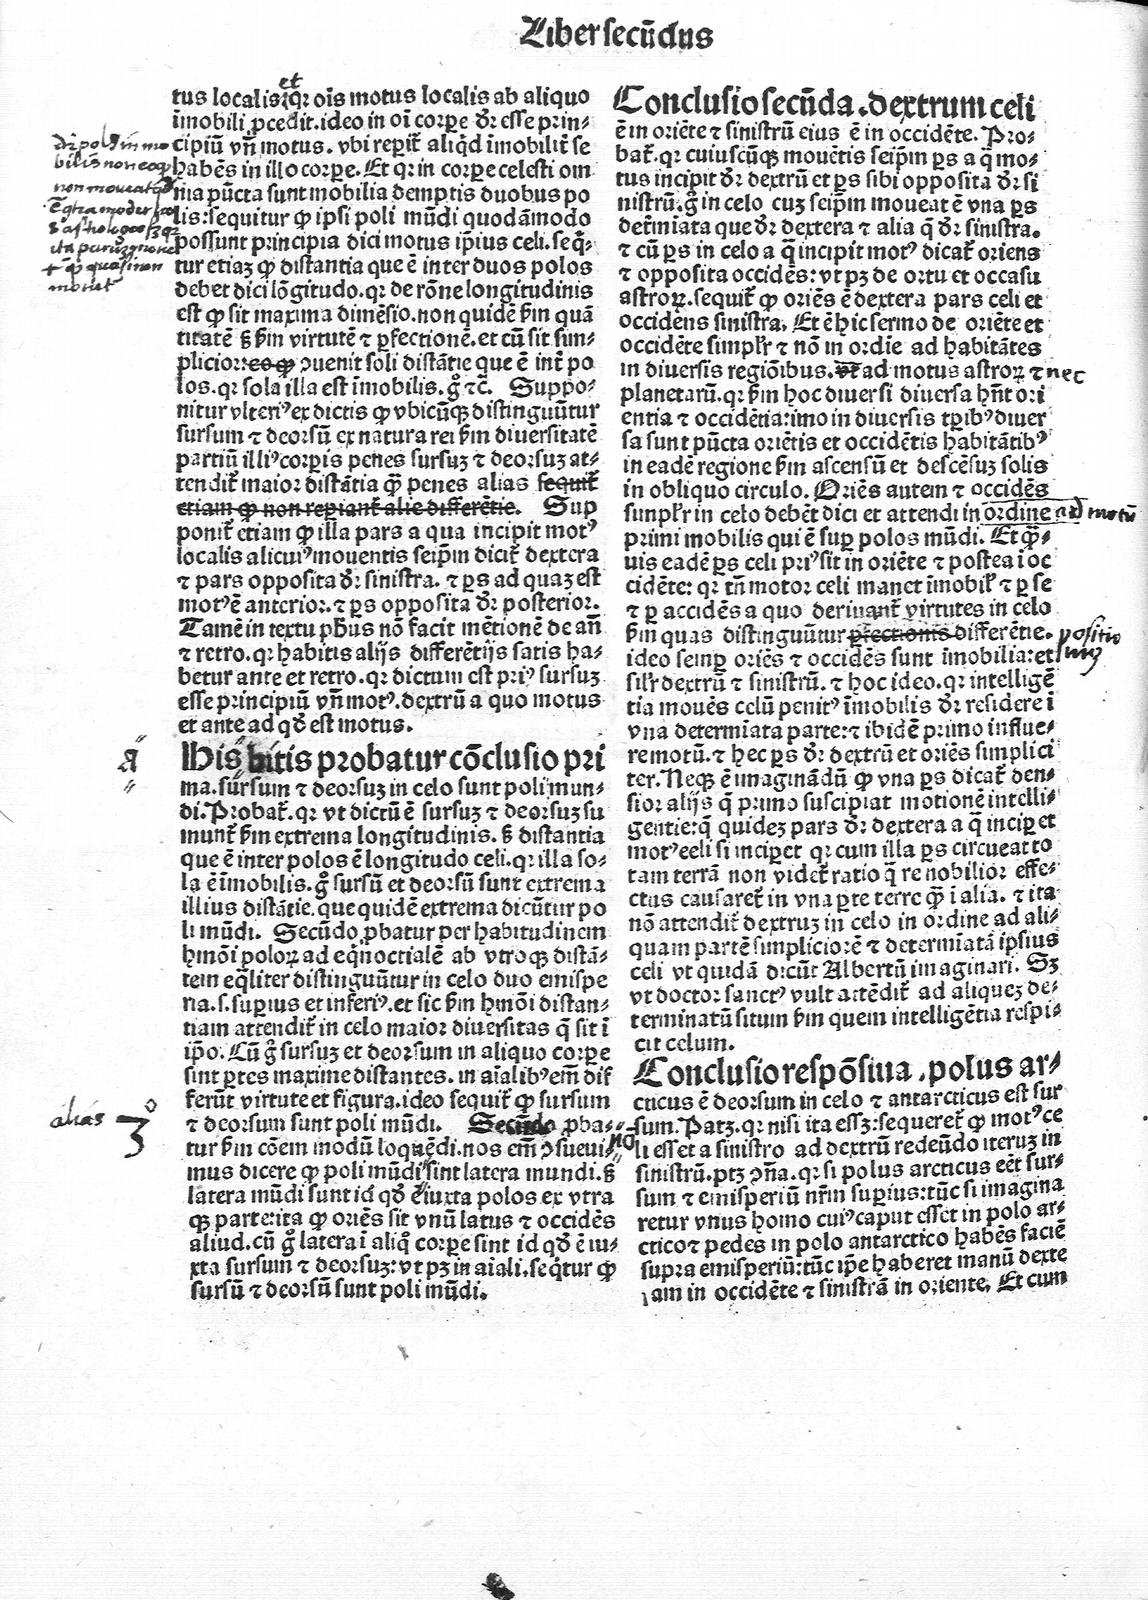 Liber secūdus
et
tus localis qꝛ oīs motus localis ab aliquo
īmobili ꝓcedit. ideo in oī corꝑe dr̄ esse prin⸗
cipiū vn̄ motus. vbi reꝑit̄ aliqd̄ imobilit̄ se
habēs in illo corꝑe. Et qꝛ in corꝑe celesti om
nia pūcta sunt mobilia demptis duobus po
lis: sequitur ꝙ ipsi poli mūdi quodāmodo
possunt principia dici motus ipius celi. seq̄⸗
tur etiaꝫ ꝙ distantia que ē inter duos polos
debet dici lōgitudo. qꝛ de rōne longitudinis
est ꝙ sit maxima dimēsio. non quidē ẜm quā
titatē ꝫ ẜm virtutē ⁊ ꝑfectionē. et cū sit sim⸗
plicior: eo ꝙ ꝯuenit soli distātie que ē int̄ po
los. qꝛ sola illa est īmobilis. gͦ ⁊c̄. Suppo⸗
nitur vlteriꝰ ex dictis ꝙ vbicūqꝫ distinguūtur
sursum ⁊ deorsū ex natura rei ẜm diuersitatē
partiū illiꝰ corꝑis penes sursuꝫ ⁊ deorsuꝫ at⸗
tendit̄ maior distātia ꝙ̄ penes alias sequit̄
etiam ꝙ non reperiant̄ alie differētie. Sup
ponit̄ etiam ꝙ illa pars a qua incipit motꝰ
localis alicuiꝰ mouentis seip̄m dicit̄ dextera
⁊ pars opposita dr̄ sinistra. ⁊ ꝑs ad quaꝫ est
motꝰ ē anterior. ⁊ ꝑs opposita dr̄ posterior.
Tamē in textu ph̄us nō facit mētionē de an̄
⁊ retro. qꝛ habitis alijs differētijs satis ha⸗
betur ante et retro. qꝛ dictum est priꝰ sursuꝫ
esse principiū vn̄ motꝰ. dextrū a quo motus
et ante ad qd̄ est motus.
His bitis probatur cōclusio pri
ma. sursum ⁊ deorsuꝫ in celo sunt poli mun⸗
di. Probat̄. qꝛ vt dictū ē sursuꝫ ⁊ deorsuꝫ su
munt̄ ẜm extrema longitudinis. ꝫ distantia
que ē inter polos ē longitudo celi. qꝛ illa so⸗
la ē īmobilis. gͦ sursū et deorsū sunt extrema
illius distātie. que quidē extrema dicūtur po
li mūdi. Secūdo ꝓbatur per habitudinem
hmōi poloꝝ ad eq̄noctialē ab vtroqꝫ distā⸗
tem eq̄liter distinguūtur in celo duo emispe
ria. s. suꝑius et inferiꝰ. et sic ẜm hmōi distan⸗
tiam attendit̄ in celo maior diuersitas q̄ sit ī
ip̄o. Cū gͦ sursuꝫ et deorsum in aliquo corꝑe
sint ꝑtes maxime distantes. in aīalibꝰ em̄ dif
ferūt virtute et figura. ideo sequit̄ ꝙ sursum
⁊ deorsum sunt poli mūdi. Secūdo ꝓba⸗
tur ẜm cōem modū loquēdi. nos em̄ ꝯsueui⸗
mus dicere ꝙ poli mūdi sint latera mundi. ꝫ
latera mūdi sunt id qd̄ ē iuxta polos ex vtra
qꝫ parte: ita ꝙ oriēs sit vnū latus ⁊ occidēs
aliud. cū gͦ latera ī aliq̄ corꝑe sint id qd̄ ē iu⸗
xta sursum ⁊ deorsuꝫ: vt pꝫ in aīali. seq̄tur ꝙ
sursū ⁊ deorsū sunt poli mūdi.
alias 3°
Conclusio secūda. dextrum celi
ē in oriēte ⁊ sinistrū eius ē in occidēte. Pro⸗
bat̄. qꝛ cuiuscūqꝫ mouētis seip̄m ꝑs a q̄ mo⸗
tus incipit dr̄ dextrū et ꝑs sibi opposita dr̄ si
nistrū. gͦ in celo cuꝫ seip̄m moueat ē vna ꝑs
det̄miata que dr̄ dextera ⁊ alia q̄ dr̄ sinistra.
⁊ cū ꝑs in celo a q̄ incipit motꝰ dicat̄ oriens
⁊ opposita occidēs: vt pꝫ de ortu et occasu
astroꝝ. sequit̄ ꝙ oriēs ē dextera pars celi et
occidens sinistra. Et ē hic sermo de oriēte et
occidēte simplr̄ ⁊ nō in ordīe ad habitātes
in diuersis regiōibus. vt ad motus astroꝝ ⁊ nec
planetarū. qꝛ ẜm hoc diuersi diuersa hn̄t ori
entia ⁊ occidētia: imo in diuersis tꝑibꝰ diuer
sa sunt pūcta oriētis et occidētis habitātibꝰ
in eadē regione ẜm ascensū et descēsuꝫ solis
in obliquo circulo. Oriēs autem ⁊ occidēs
simplr̄ in celo debēt dici et attendi in ordine ad motū
primi mobilis qui ē suꝑ polos mūdi. Et ꝙ̄⸗
uis eadē ꝑs celi priꝰ sit in oriēte ⁊ postea ī oc
cidēte: qꝛ tn̄ motor celi manet īmobil̄ ⁊ ꝑ se
⁊ ꝑ accidēs a quo deriuant̄ virtutes in celo
ẜm quas distinguūtur ꝑfectionis differētie. positio
ideo semꝑ oriēs ⁊ occidēs sunt īmobilia: et
silr̄ dextrū ⁊ sinistrū. ⁊ hoc ideo. qꝛ intelligē
tia mouēs celū penitꝰ īmobilis dr̄ residere ī
vna determīata parte: ⁊ ibidē primo influe⸗
re motū. ⁊ hec ꝑs dr̄ dextrū et oriēs simplici
ter. Neqꝫ ē imaginādū ꝙ vna ꝑs dicat̄ den⸗
sior alijs q̄ primo suscipiat motionē intelli⸗
gentie: q̄ quidez pars dr̄ dextera a q̄ inciꝑet
motꝰ celi si inciꝑet qꝛ cum illa ꝑs circueat to
tam terrā non videt̄ ratio q̄re nobilior effe⸗
ctus causaret̄ in vna ꝑte terre ꝙ̄ ī alia. ⁊ ita
nō attendit̄ dextruꝫ in celo in ordine ad ali⸗
quam partē simpliciorē ⁊ determīatā ipsius
celi vt quidā dicūt Albertū imaginari. Sꝫ
vt doctor sanctꝰ vult attēdit̄ ad aliqueꝫ de⸗
terminatū situm ẜm quem intelligētia respi⸗
cit celum.
Conclusio respōsiua. polus ar⸗
cticus ē deorsum in celo ⁊ antarcticus est sur
sum. Patꝫ. qꝛ nisi ita essꝫ: sequeret̄ ꝙ motꝰ ce
li esset a sinistro ad dextrū redeūdo iteruꝫ in
sinistrū. ptꝫ ꝯn̄a. qꝛ si polus arcticus eēt sur⸗
sum ⁊ emisperiū nr̄m suꝑius: tūc si imagina
retur vnus homo cuiꝰ caput esset in polo ar⸗
ctico ⁊ pedes in polo antarctico habēs faciē
supra emisperiū: tūc ip̄e haberet manū dexte
ram in occidēte ⁊ sinistrā in oriente. Et cum